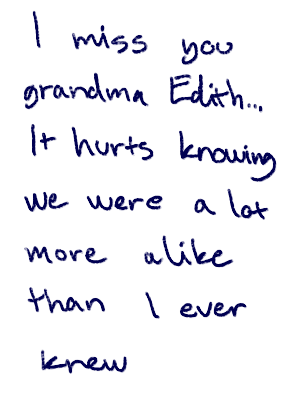 I miss you
grandma Edith...
It hurts knowing
we were a lot
more alike
than I ever
knew